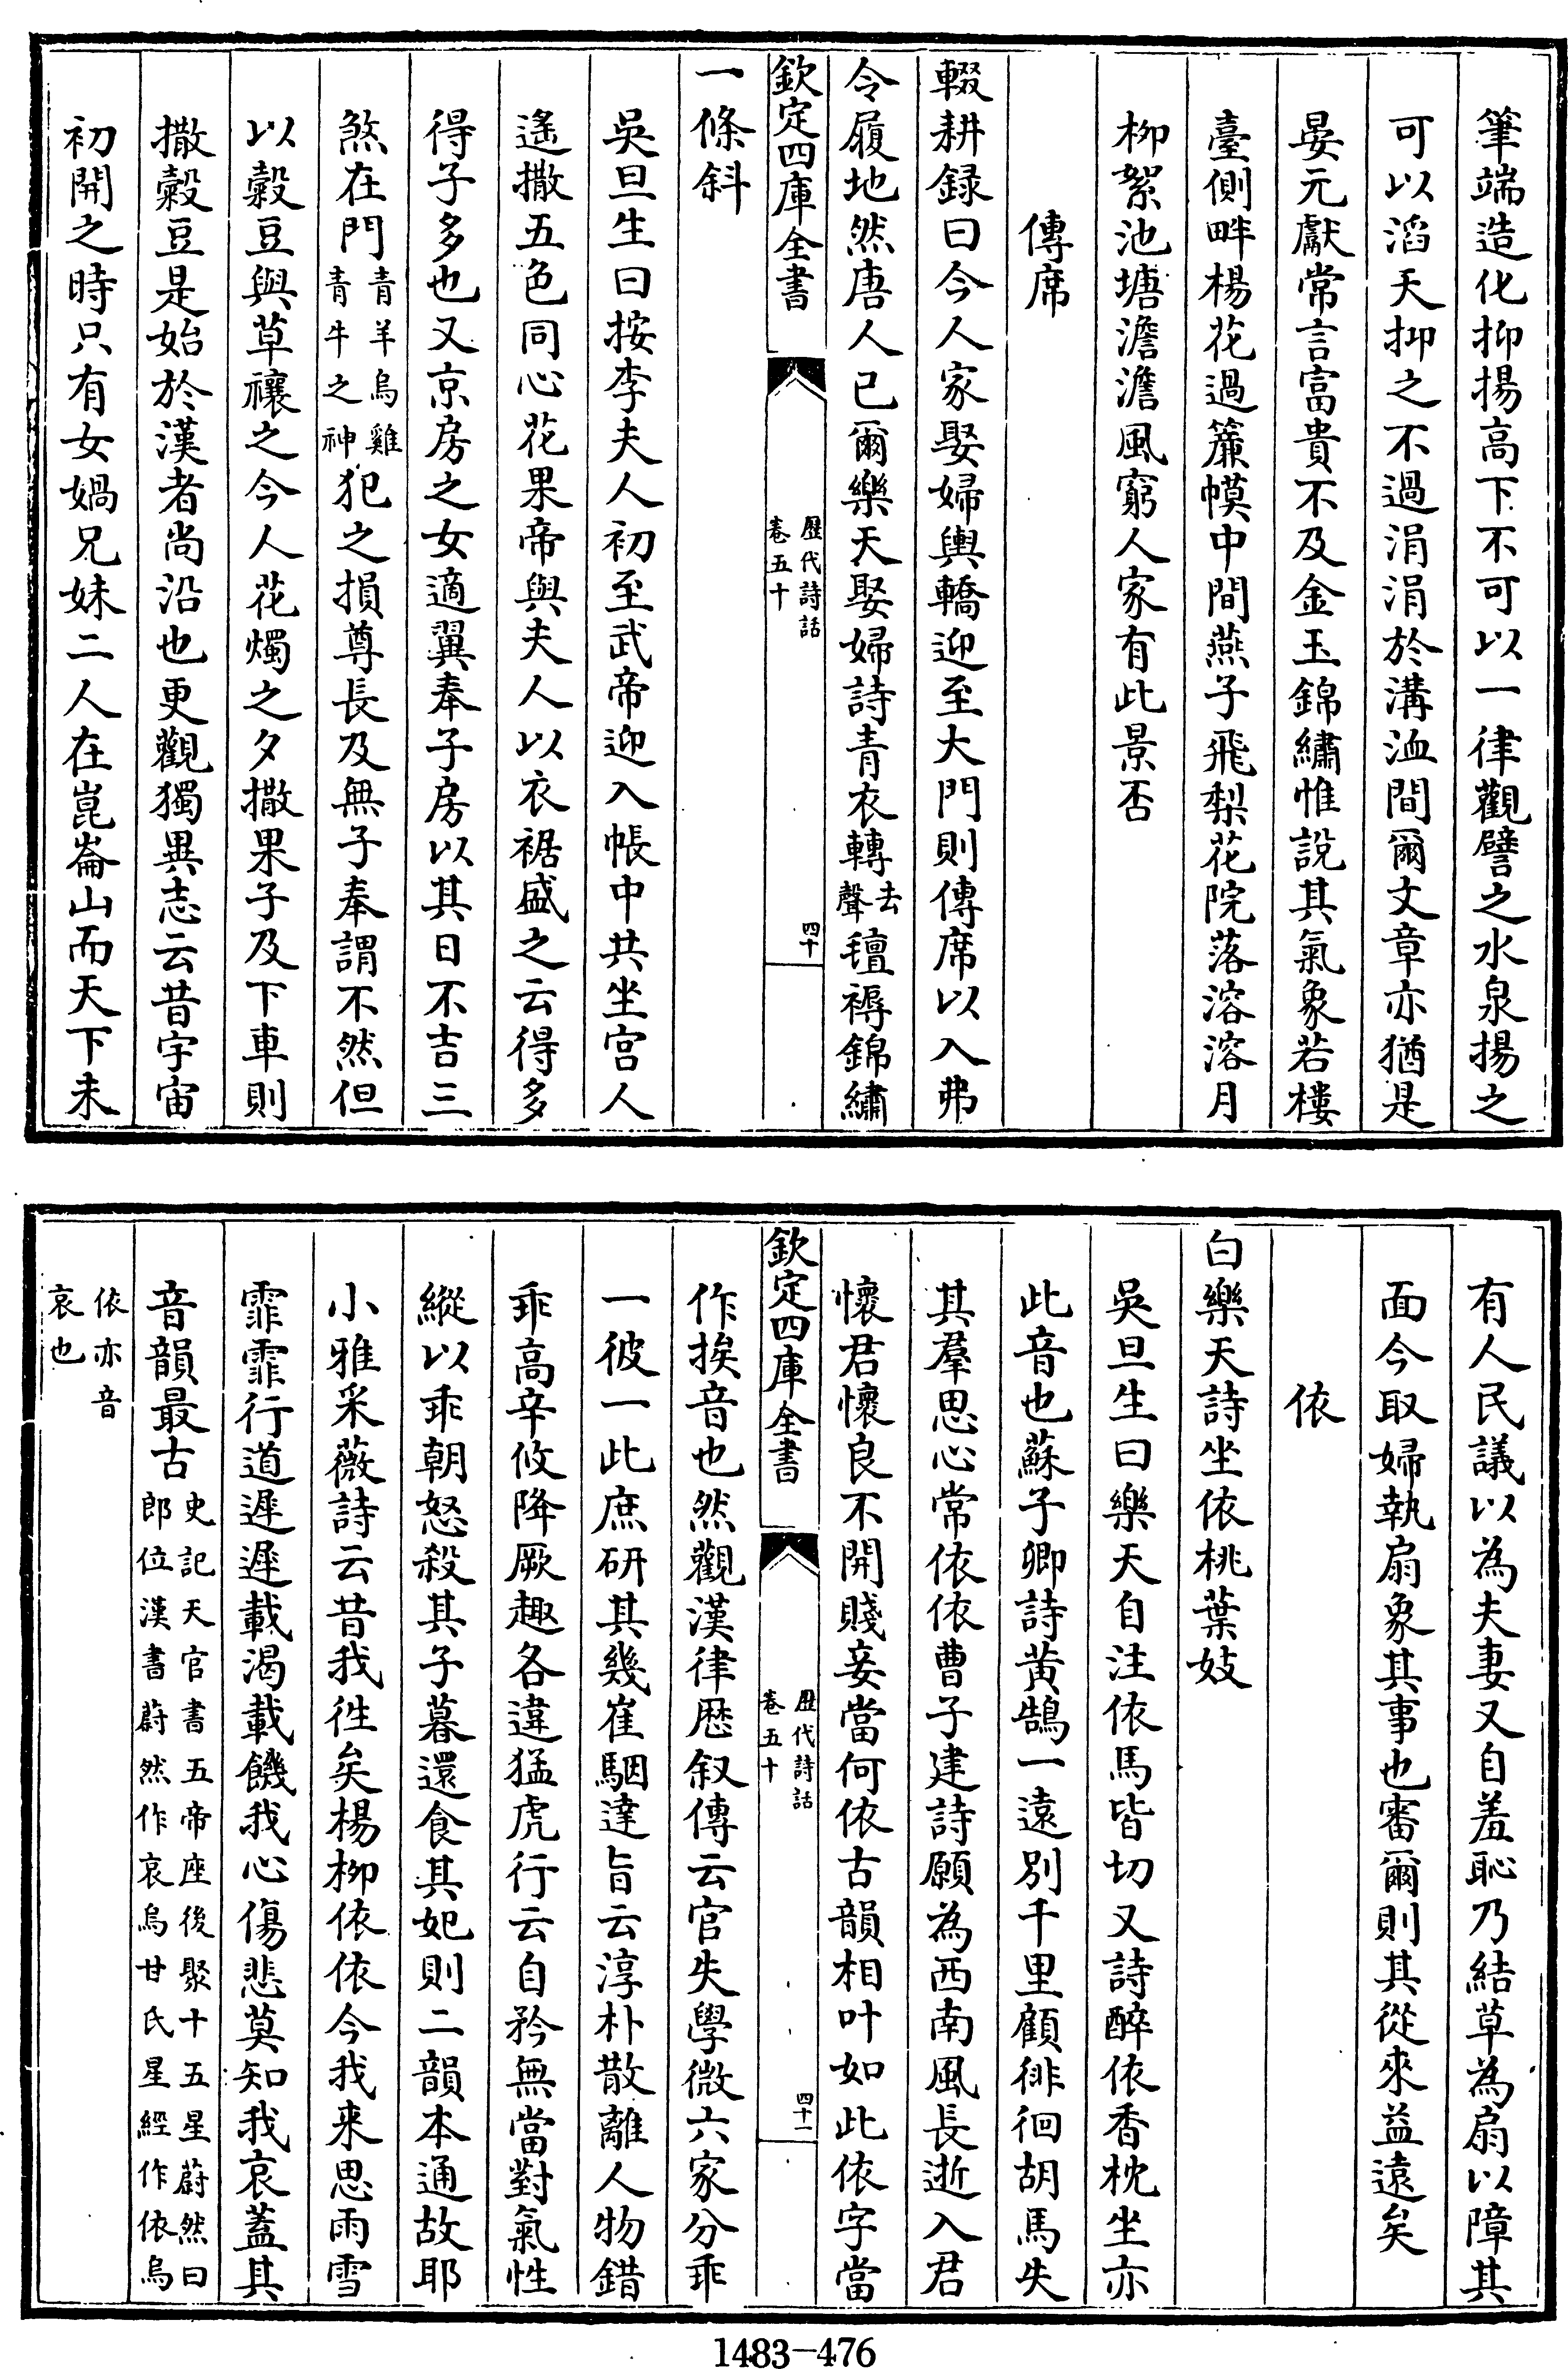 筆端造化抑揚高下不可以一律觀譬之水泉揚之
可以滔天抑之不過涓涓於溝洫間爾文章亦猶是
晏元獻常言富貴不及金玉錦繡惟說其氣象若樓
臺側畔楊花過簾幙中間燕子飛梨花院落溶溶月
柳絮池塘澹澹風窮人家有此景否
傳席
輟耕録曰今人家娶婦輿轎迎至大門則傳席以入弗
令履地然唐人已爾樂天娶婦詩青衣轉去聲氊褥錦繡
欽定四庫全書
歴代詩話
卷五十
四十
一條斜
吳旦生曰按李夫人初至武帝迎入帳中共坐宫人
遙撒五色同心花果帝與夫人以衣裾盛之云得多
得子多也又京房之女適翼奉子房以其日不吉三
煞在門青羊烏雞青牛之神犯之損尊長及無子奉謂不然但
以糓豆與草禳之今人花燭之夕撒果子及下車則
撒糓豆是始於漢者尚沿也更觀獨異志云昔宇宙
初開之時只有女媧兄妹二人在崑崙山而天下未
有人民議以為夫妻又自羞恥乃結草為扇以障其
面今取婦執扇象其事也審爾則其從來益遠矣
依
白樂天詩坐依桃葉妓
吳旦生曰樂天自注依馬皆切又詩醉依香枕坐亦
此音也蘇子卿詩黄鵠一遠別千里顧徘徊胡馬失
其羣思心常依依曹子建詩願為西南風長逝入君
懷君懷良不開賤妾當何依古韻相叶如此依字當
欽定四庫全書
歴代詩話
卷五十
四十一
作挨音也然觀漢律歴叙傳云官失學微六家分乖
一彼一此庶研其幾崔駰達旨云淳朴散離人物錯
乖高辛攸降厥趣各違猛虎行云自矜無當對氣性
縱以乖朝怒殺其子暮還食其妃則二韻本通故耶
小雅采薇詩云昔我徃矣楊柳依依今我来思雨雪
霏霏行道遲遲載渴載饑我心傷悲莫知我哀蓋其
音韻最古史記天官書五帝座後聚十五星蔚然曰郎位漢書蔚然作哀烏甘氏星經作依烏
依亦音哀也
1483-476